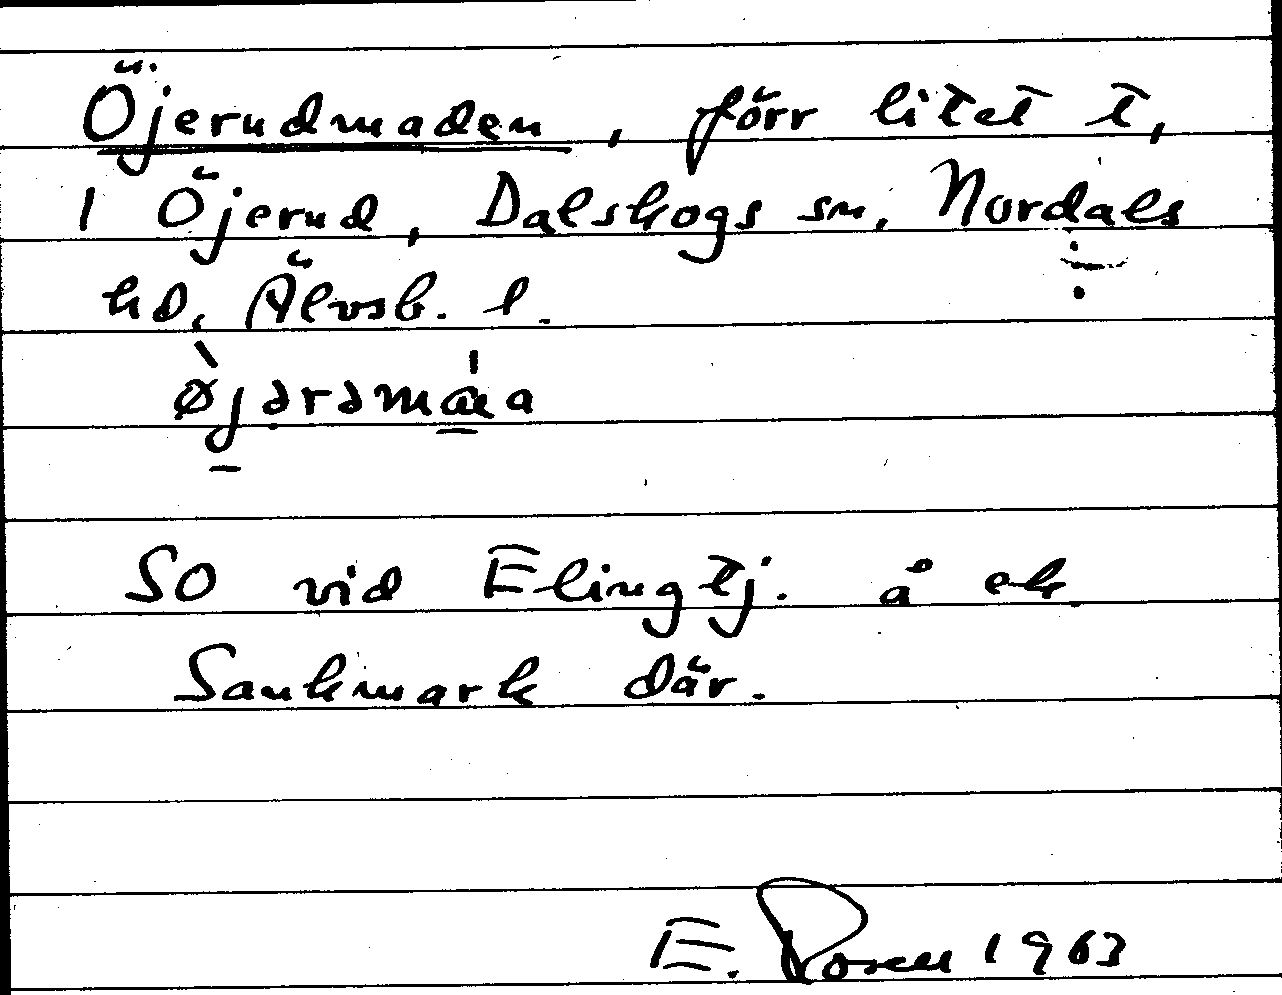 Öjerudmaden, förr litet t,
1 Öjerud, Dalskogs sn, Nordals
hd, Älvsb. l.
SO vid Elingtj. å ek
Sankmark där.
E. Rosell 1963